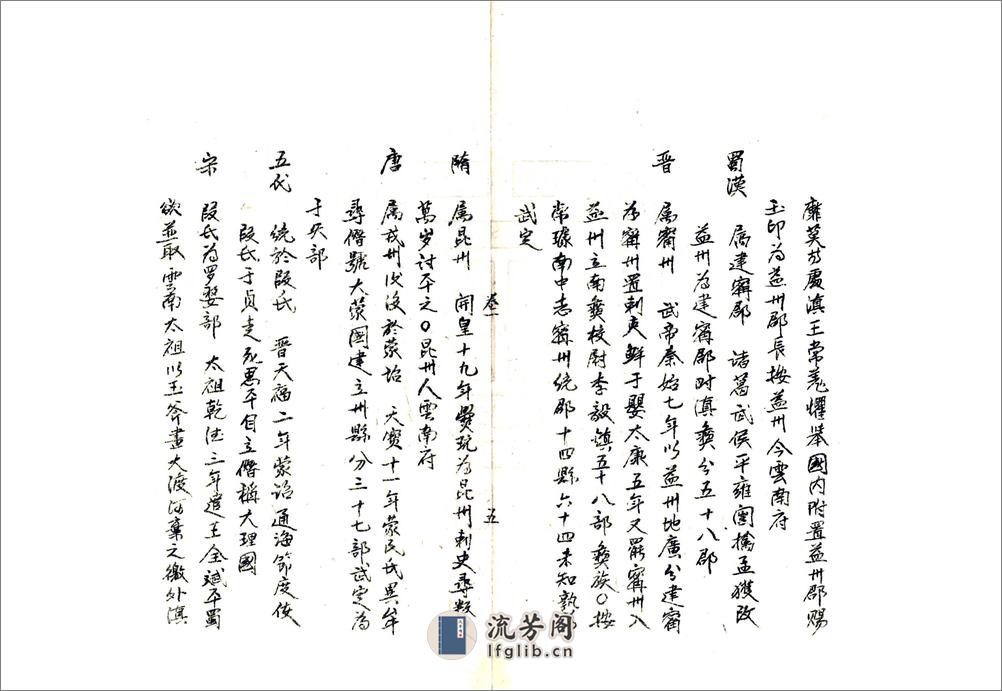 靡莫於属滇王常羌懼举國内附置益州郡賜
王印为益州郡長按益州今雲南府
蜀漢 属建寗郡 诸葛武侯平雍闿擒孟獲改
益州为建寗郡时滇彝分五十八郡
晋 属寗州 武帝泰始七年以益州地廣分建寗
为寗州置刺吏鲜于嬰太康五年又罷寗州入
益州立南彝校尉李毅鎮五十八部彝族〇按
常璩南中志寗州統郡十四縣六十四未知孰
武定
隋 属昆州 開皇十九年爨玩为昆州刺史尋叛
萬岁讨平之〇昆州人雲南府
卷一 五
唐 属戎州次没於蒙诏 天寳十一年蒙氏異牟
尋僭號大蒙國建立州縣分三十七部武定为
于矢部
五代 統於段氏 晋天福二年蒙诏通海節度使
段氏于貞走死思平自立僭稱大理國
宋 段氏为罗婺部 太祖乾德三年遣王全斌平蜀
欲並取雲南太祖以玉斧畫大渡河棄之徼外滇
流芳阁
lfglib.cn